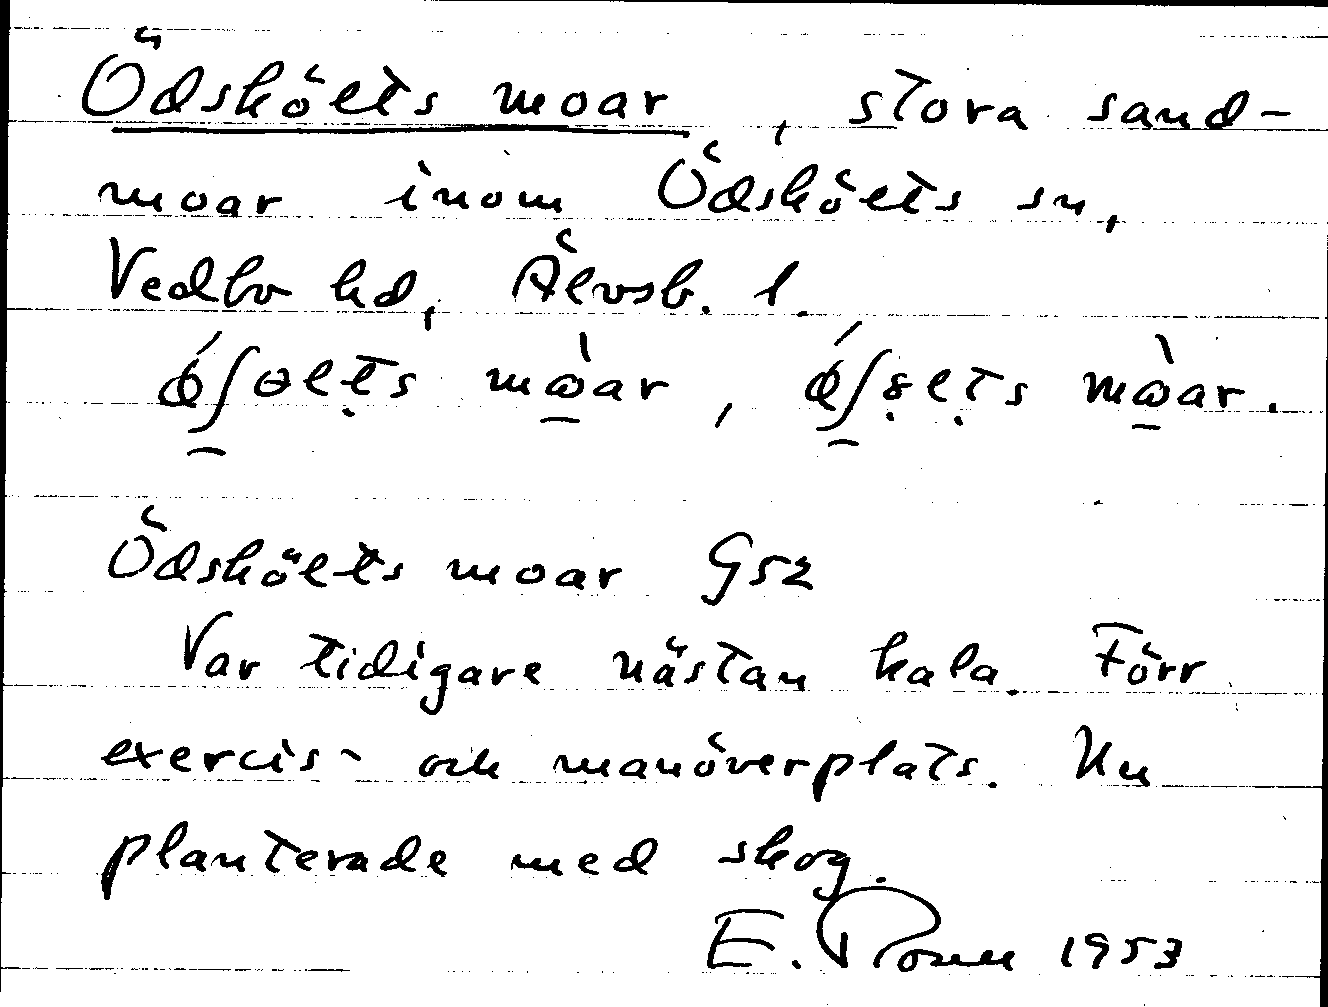 Ödskölts moar, stora sand-
moar inom Ödskölts sn,
Vedbo hd, Älvsb. l.
Ödskölts moar G52
Var tidigare nästan kala. Förr
exercis- och manöverplats. Nu
planterade med skog.
E. 1953